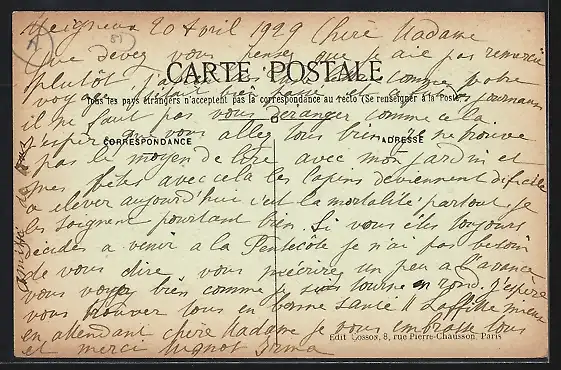 Meigneux 20 Avril 1929 Chère Madame
que devez vous penser que je aie pas remercié
plutôt j'ai comme votre
CARTE POSTALE
voyage s'était bien passé et les journaux
Tous les pays étrangers n'acceptent pas la correspondance au recto (Se renseigner à la Poste)
il ne faut pas vous deranger comme cela
j'espère que vous allez tous bien je ne trouve
CORRESPONDANCE
ADRESSE
pas le moyen de lire avec mon jardin et
mes bêtes avec cela les lapins deviennent difficile
a elever aujourd'hui c'est la mortalité partout je
les soignent pourtant bien. Si vous êtes toujours
décidés a venir a la Pentecôte je n'ai pas besoin
de vous dire vous m'écrirez un peu a l'avance
vous voyez bien comme je suis tourne en rond. J'espère
vous trouver tous en bonne santé Laffitte mieux
en attendant chère Madame je vous embrasse tous
Edit Cosson, 8, rue Pierre-Chausson, Paris
et merci Mignot Irma